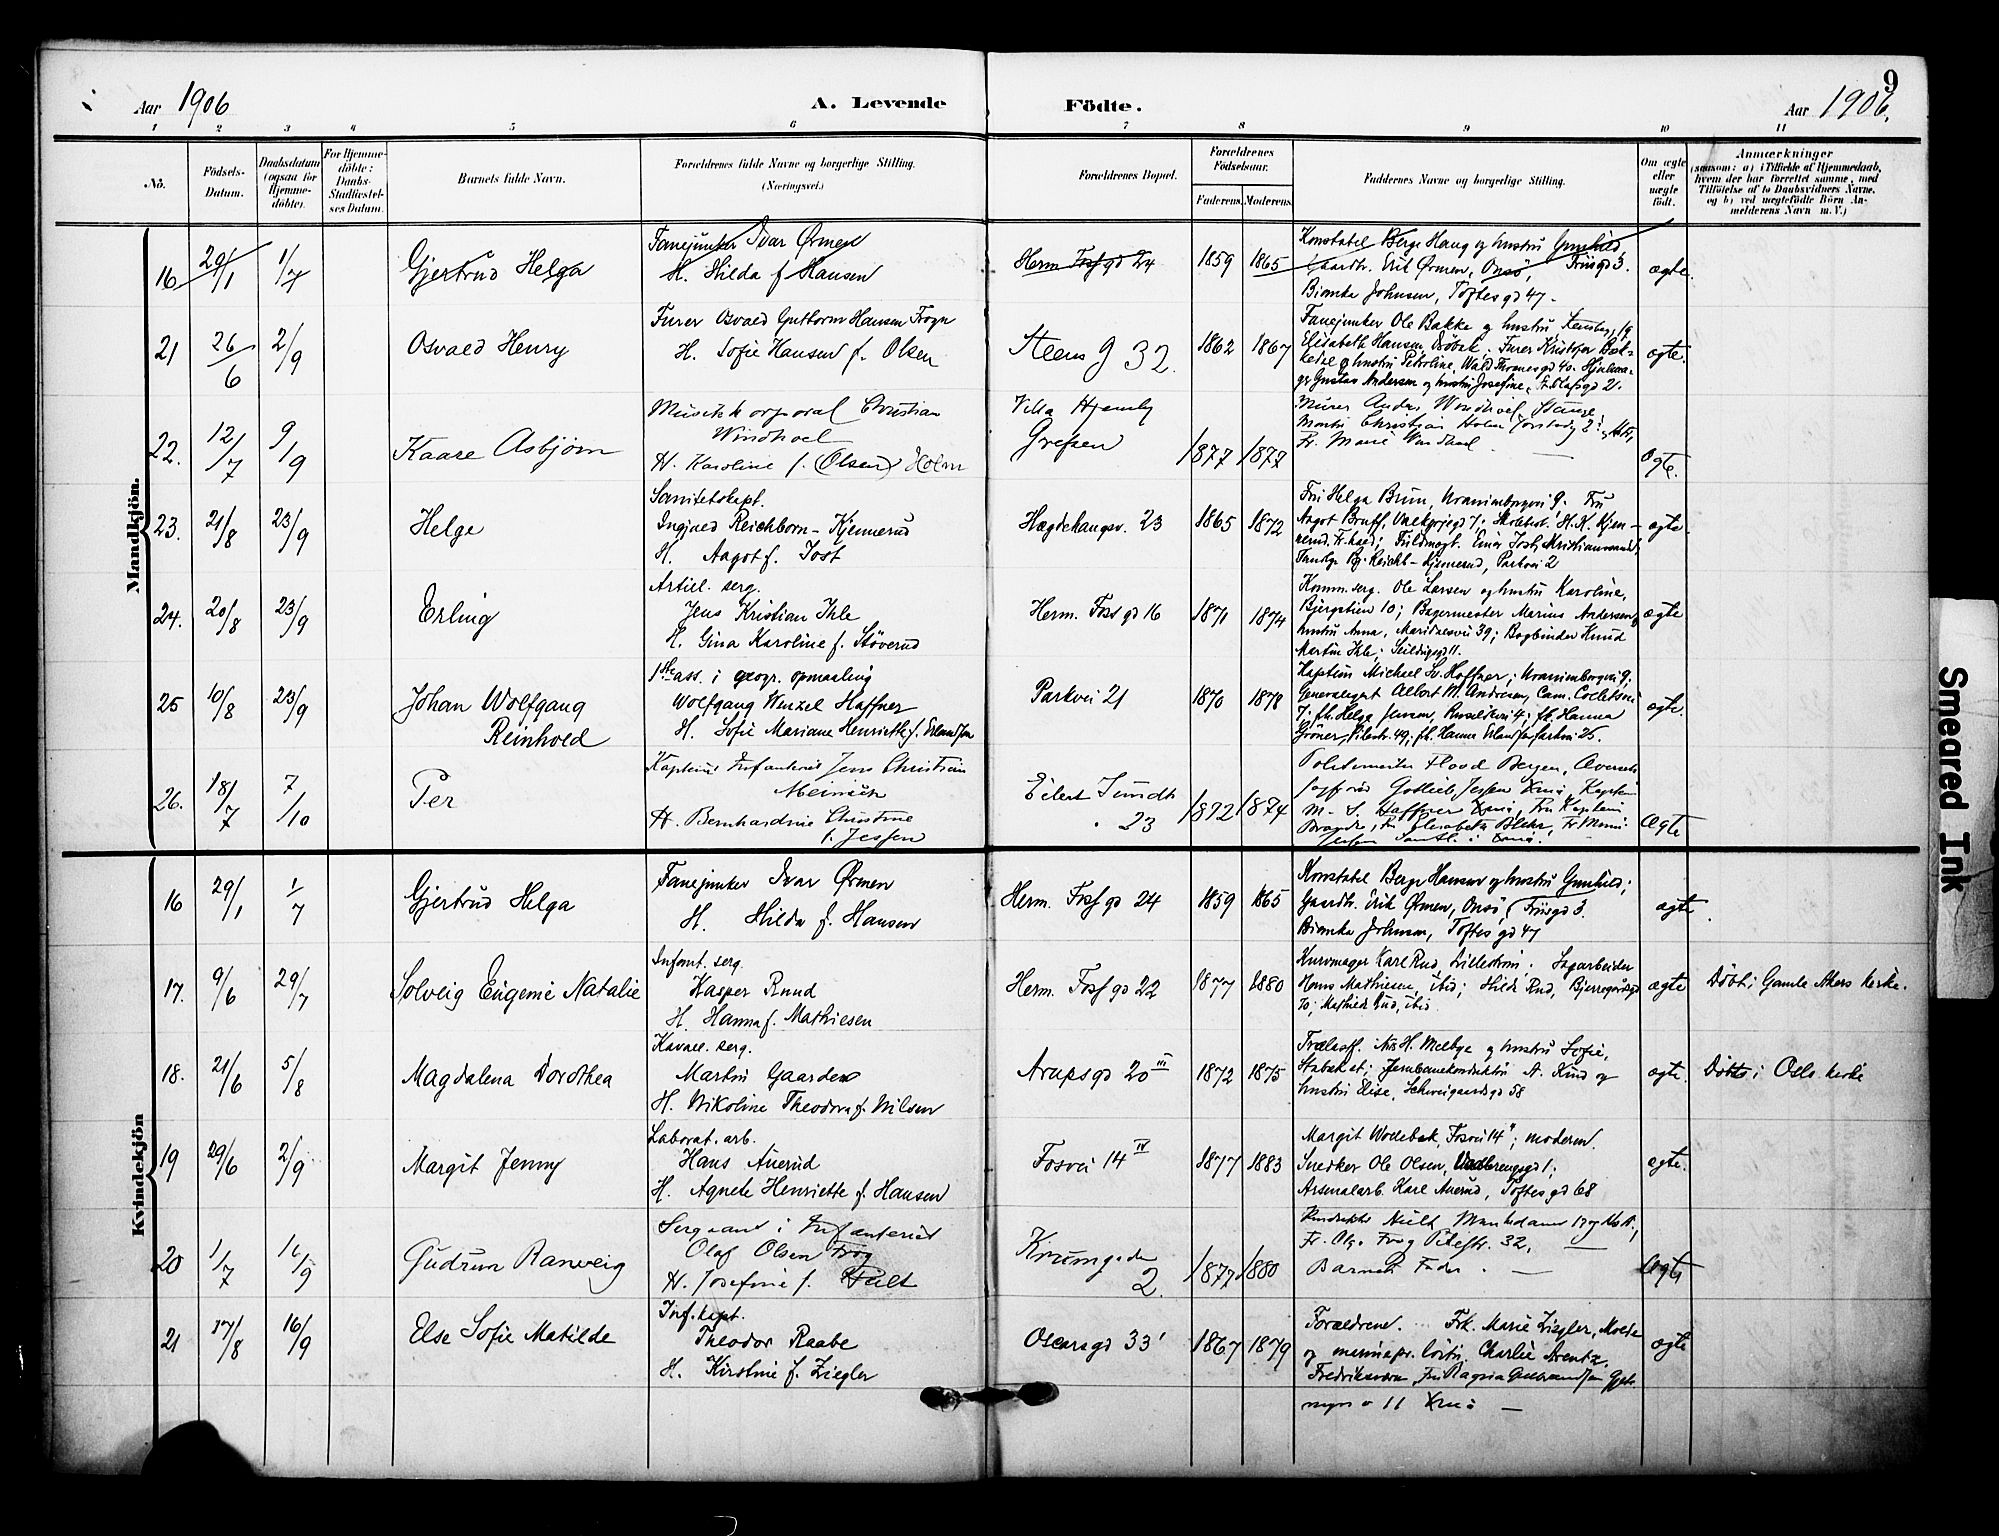 9
Aar 1906 A. Levende Födte. Aar 1906.
1 2 3 4 5 6 7 8 9 10 11
No.
Födsels-
Datum.
Daabsdatum
(ogsaa for
Hjemme-
döbte).
For Hjemme-
döbte:
Daabs-
Stadfæstel-
ses Datum.
Barnets fulde Navn.
Forældrenes fulde Navne og borgerlige Stilling.
(Næringsvei.)
Forældrenes Bopæl.
Forældrenes
Födselsaar.
Faderens. Moderens.
Faddernes Navne og borgerlige Stilling.
Om ægte
eller
uægte
födt.
Anmærkninger
(saasom: a) i Tilfælde af Hjemmedaab,
hvem der har forrettet samme, med
Tilföielse af to Daabsvidners Navne,
og b) ved uægtefödte Börn An-
melderens Navn m. V.)
Mandkjön.
16 29/1 1/7 Gjertrud Helga
Fanejunker Ivar Ørmen
H. Hilda f. Hansen
Herm. Fossgd 24 1859 1865
Konstabel Berge Haug og hustru Gunhild,
Gaardbr. Erik Ørmen, Onsö, Friisgd 3.
Bianka Johnsen, Toftesgd 47.
ægte.
21 26/6 2/9 Osvald Henry
Furer Osvald Guttorm Hansen Frogn
H. Sofie Hansen f. Olsen
Steens g 32. 1862 1867
Fanejunker Ole Bakke og hustru
Elisabeth Hansen Furer Kristofer
og hustru Petroline, Wald. Thranesgd 40.
Gustav Andersen og hustru Josefine, St. Olafsgd 21.
ægte.
22. 12/7 9/9 Kaare Asbjørn
Musikkorporal Christian
Windhoel
H. Karoline f. (Olsen) Holm
Villa Hjemly
Grefsen 1877 1877
Murer Anders Stange;
Martin Christian Holm
Fr. Marie
Ægte.
23. 21/8 23/9 Helge
Sanitetskapt.
Ingjald Reichborn-Kjennerud
H. Aagot f. Tost
Hægdehaugsv. 23 1865 1872
Fru Helga Brun, Uranienborgvei 9; Fru
Aagot H. K. Kjen-
nerud, Fuldmægt. Einar Tost, Kristianssand
Reichb-Kjennerud, Parkvei 2
ægte.
24. 20/8 23/9 Erling
Artill. serg.
Jens Kristian Ihle
H. Gina Karoline f. Støverud
Herm. Foss gd 16 1871 1874
Komm.serg. Ole Larsen og hustru Karoline,
Bjergstien 10; Bagermester Marius Andersen og
hustru Anna, Maridalsvei 39; Bogbinder Knud
Martin Ihle, Seildugsgd 11.
ægte
25 10/8 23/9 Johan Wolfgang
Reinhold
1ste ass. i geogr. opmaaling
Wolfgang Wenzel Haffner
H. Sofie Mariane Henriette f. Erlandsen
Parkvei 21 1870 1878
Kaptein Michael Sv. Haffner, Uranienborgvei 9;
Generalagent Albert M. Andresen, Cam. Collettsvei
7; frk. Helga Jensen, frk. Hanna
Gröner, Pilestr. 49; frk. Hanna Erlandsen Parkvei 25.
ægte.
26. 18/7 7/10 Per
Kaptein i Infanteriet Jens Christian
Meinich
H. Bernhardine Christine
f. Jessen
Eilert Sundts
23 1872 1874
Politimester Flood Bergen,
Gottlieb Jessen Xnia, Kaptein
M. S. Haffner Xnia, Fru Kaptein
Fr. Elisabeth Blehr,
Jessen samtl. i Xnia.
Ægte
Kvindekjön
16 29/1 1/7 Gjertrud Helga
Fanejunker Ivar Ørmen
H. Hilda f. Hansen
Herm. Foss gd 24 1859 1865
Konstabel Berge Hansen og hustru Gunhild;
Gaardbr. Erik Ørmen, Onsö, Friisgd 3.
Bianka Johnsen, Toftes gd 47
ægte.
17. 9/6 29/7 Solveig Eugenie Natalie
Infant. serg.
Kasper Ruud
H. Hanna f. Mathiesen
Herm. Foss gd 22 1877 1880
Kurvmager Karl Rud, Lilleström. Sagarbeider
Hans Mathiesen, ibid; Hilda Rud, Bjerregaardsgd
70; Mathilde Rud, ibid.
ægte
Döbt i Gamle Akers kirke.
18. 21/6 5/8 Magdalena Dorothea
Kavall. serg.
Martin Gaarder
H. Nikoline Theodora f. Nilsen
Arupsgd 20 III 1872 1875
Trælastf. Nils H. Melbye og hustru Sofie,
Stabæk st; Jernbanekonduktör A. Rud og
hustru Elise, Schweigaardsgd 58
ægte.
Döbt i Oslo kirke
19 29/6 2/9 Margit Jenny
Laborat. arb.
Hans Auerud
H. Agnete Henriette f. Hansen
Fosvei 14 IV 1877 1883
Margit Wodebak, Fosvei 14; moderen.
Snedker Ole Olsen, 1;
Arsenalarb. Karl Auerud, Toftes gd 68
ægte.
20 1/7 16/9 Gudrun Ranveig
Sergeant i Infanteriet
Olaf Olsen Frog
H. Josefine f. Hult
Krumgaden
2. 1877 1880
Hult
Fr. Olga Frog Pilestr. 32,
Barnets Fader.
Ægte
21 17/8 16/9 Else Sofie Matilde
Inf. kapt.
Theodor Raabe
H. Kirstine f. Ziegler
Oscarsgd 33' 1867 1879
Forældrene. Frk. Marie Ziegler, Molde
og marinepr. löitn. Charlie Arentz,
Fredriksværn, Fru Ragna Gulbrandsen
11 Xnia
ægte
Smeared Ink